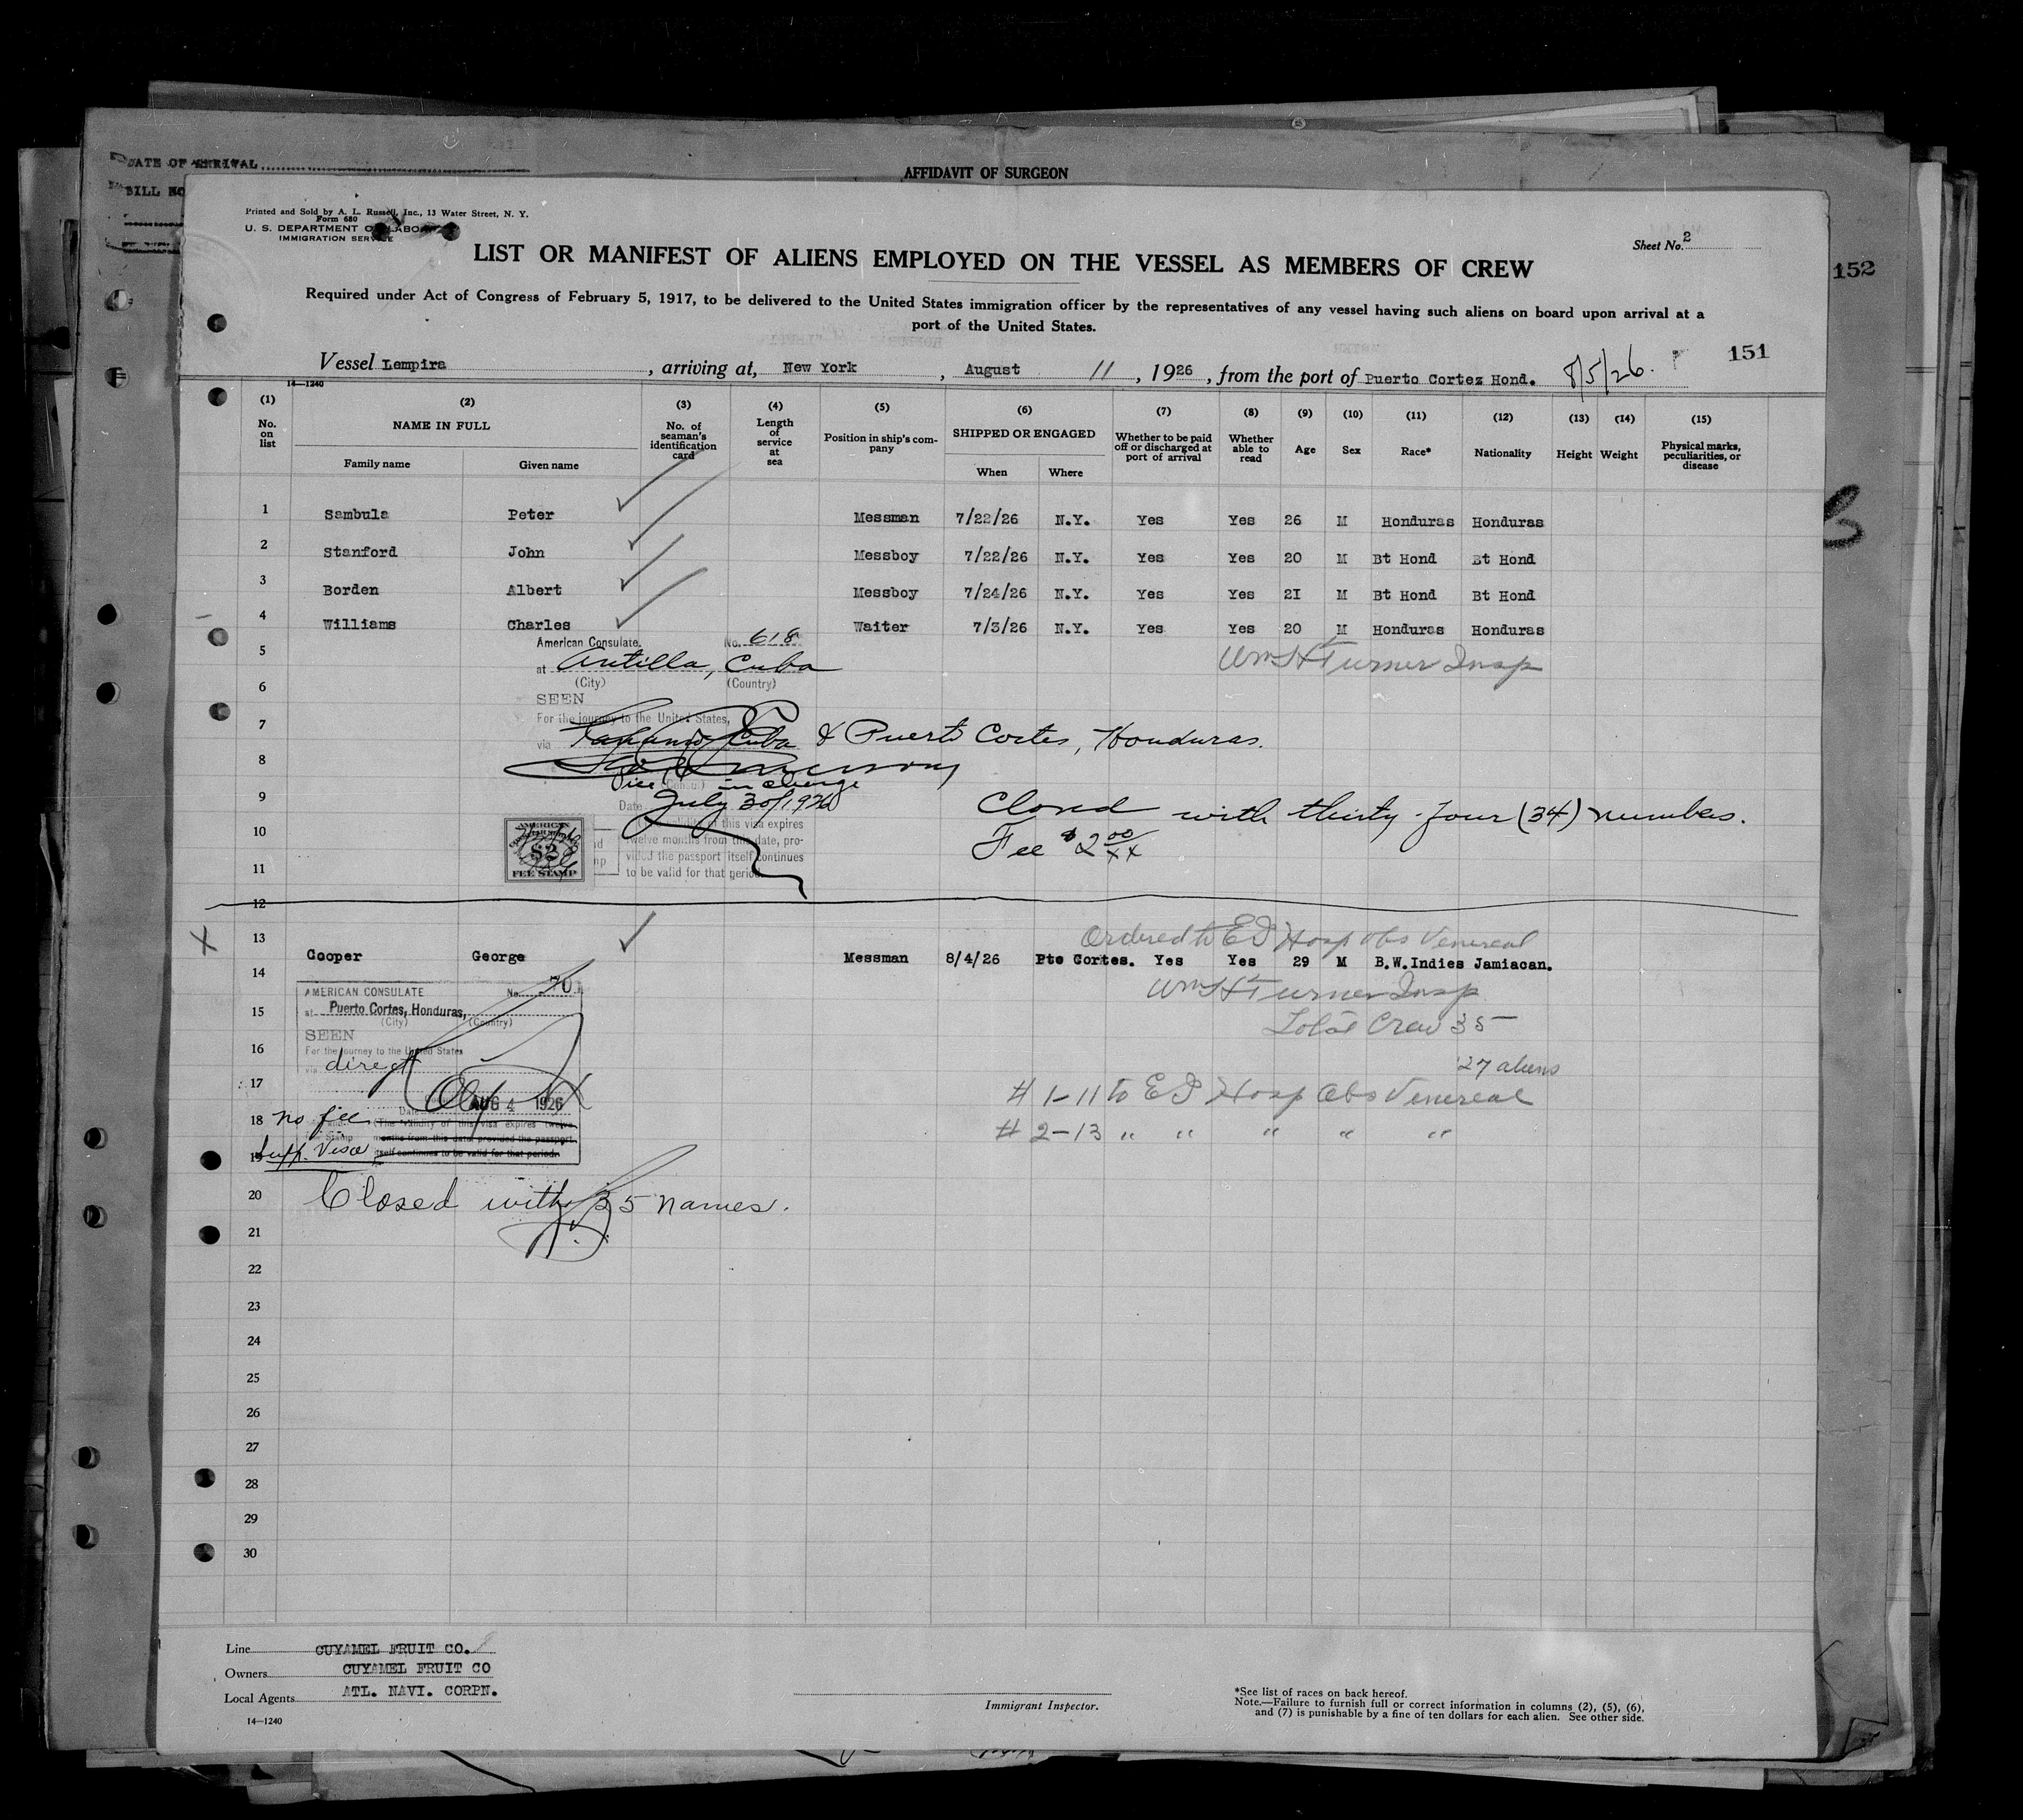 DATE OF ARRIVAL
BILL NO
AFFIDAVIT OF SURGEON
152
Printed and Sold by A. L. Russell, Inc., 13 Water Street, N. Y.
Form 680
U. S. DEPARTMENT OF LABOR
IMMIGRATION SERVICE
Sheet No. 2
LIST OR MANIFEST OF ALIENS EMPLOYED ON THE VESSEL AS MEMBERS OF CREW
Required under Act of Congress of February 5, 1917, to be delivered to the United States immigration officer by the representatives of any vessel having such aliens on board upon arrival at a
port of the United States.
151
Vessel Lempira, arriving at, New York, August 11, 1926, from the port of Puerto Cortez Hond. 8/5/26.
14—1240
(1) (2) (3) (4) (5) (6) (7) (8) (9) (10) (11) (12) (13) (14) (15)
No. on list
NAME IN FULL
Family name
Given name
No. of seaman's identification card
Length of service at sea
Position in ship's company
SHIPPED OR ENGAGED
When
Where
Whether to be paid off or discharged at port of arrival
Whether able to read
Age
Sex
Race*
Nationality
Height
Weight
Physical marks, peculiarities, or disease
1 Sambula Peter Messman 7/22/26 N.Y. Yes Yes 26 M Honduras Honduras
2 Stanford John Messboy 7/22/26 N.Y. Yes Yes 20 M Bt Hond Bt Hond
3 Borden Albert Messboy 7/24/26 N.Y. Yes Yes 2I M Bt Hond Bt Hond
4 Williams Charles Waiter 7/3/26 N.Y. Yes Yes 20 M Honduras Honduras
American Consulate. No. 618
5 at Antilla, Cuba
Wm H Turner Insp
(City) (Country)
6
SEEN
7 For the journey to the United States,
via Cuba & Puerto Cortes, Honduras.
8
Vice Consul in charge
9 Date July 30/1926
Closed with thirty-four (34) numbers.
10 The validity of this visa expires
twelve months from this date, provided the passport itself continues
to be valid for that period.
Fee $2 00/xx
AMERICAN
$2
FEE STAMP
11
12
13 Ordered to EI Hosp obs Venereal
Cooper George Messman 8/4/26 Pto Cortes. Yes Yes 29 M B.W.Indies Jamiacan.
14
AMERICAN CONSULATE No. 70
Wm H Turner Insp
15 at Puerto Cortes, Honduras,
(City) (Country)
Total Crew 35
SEEN
16 For the journey to the United States
via direct
27 aliens
17
# 1-11 to EI Hosp Obs Venereal
Date AUG 4 1926
18 No fee
(The validity of this visa expires twelve
months from this date, provided the passport
itself continues to be valid for that period)
# 2-13 " " " " "
19 Supp. Visa
20 Closed with 35 names.
21
22
23
24
25
26
27
28
29
30
Line CUYAMEL FRUIT CO.
Owners CUYAMEL FRUIT CO
Local Agents ATL. NAVI. CORPN.
14—1240
Immigrant Inspector.
*See list of races on back hereof.
Note.—Failure to furnish full or correct information in columns (2), (5), (6),
and (7) is punishable by a fine of ten dollars for each alien. See other side.